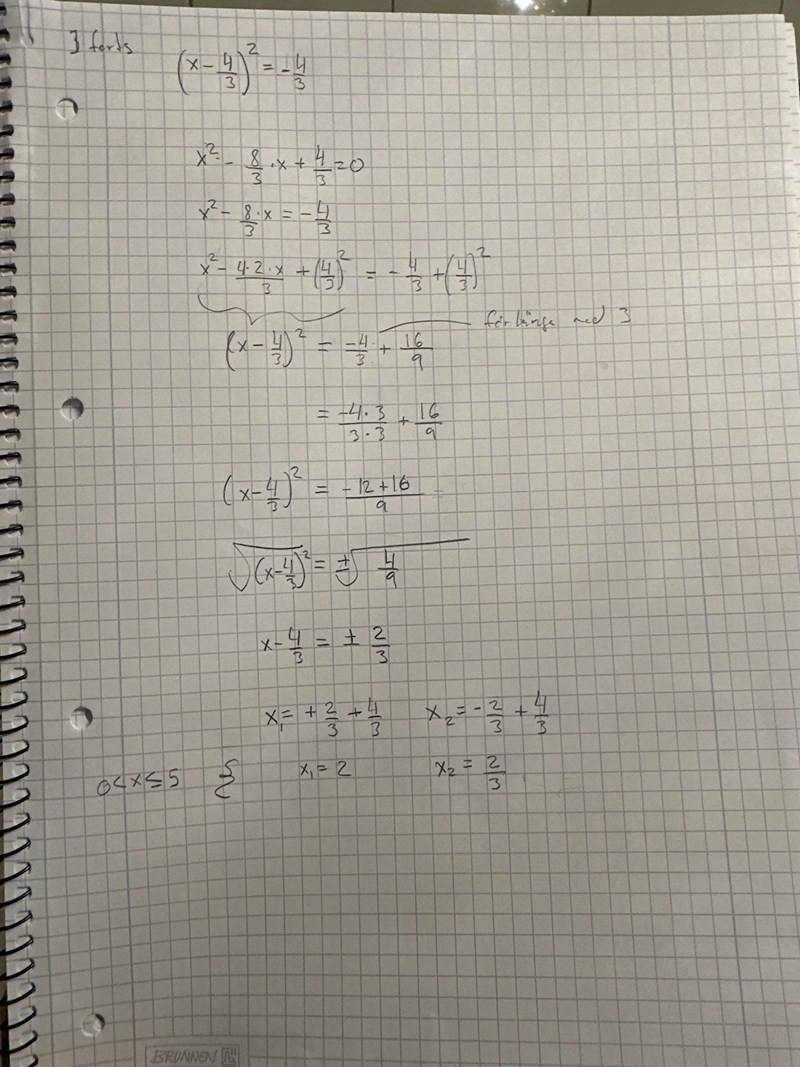 3 forts
(x - 4/3)² = -4/3
x² - 8/3 · x + 4/3 = 0
x² - 8/3 · x = -4/3
x² - 4·2·x/3 + (4/3)² = -4/3 + (4/3)²
(x - 4/3)² = -4/3 + 16/9 förlänga med 3
= -4·3/3·3 + 16/9
(x - 4/3)² = -12+16/9
√(x - 4/3)² = ±√4/9
x - 4/3 = ± 2/3
x₁ = +2/3 + 4/3 x₂ = -2/3 + 4/3
0 < x ≤ 5 } x₁ = 2 x₂ = 2/3
BRUNNEN